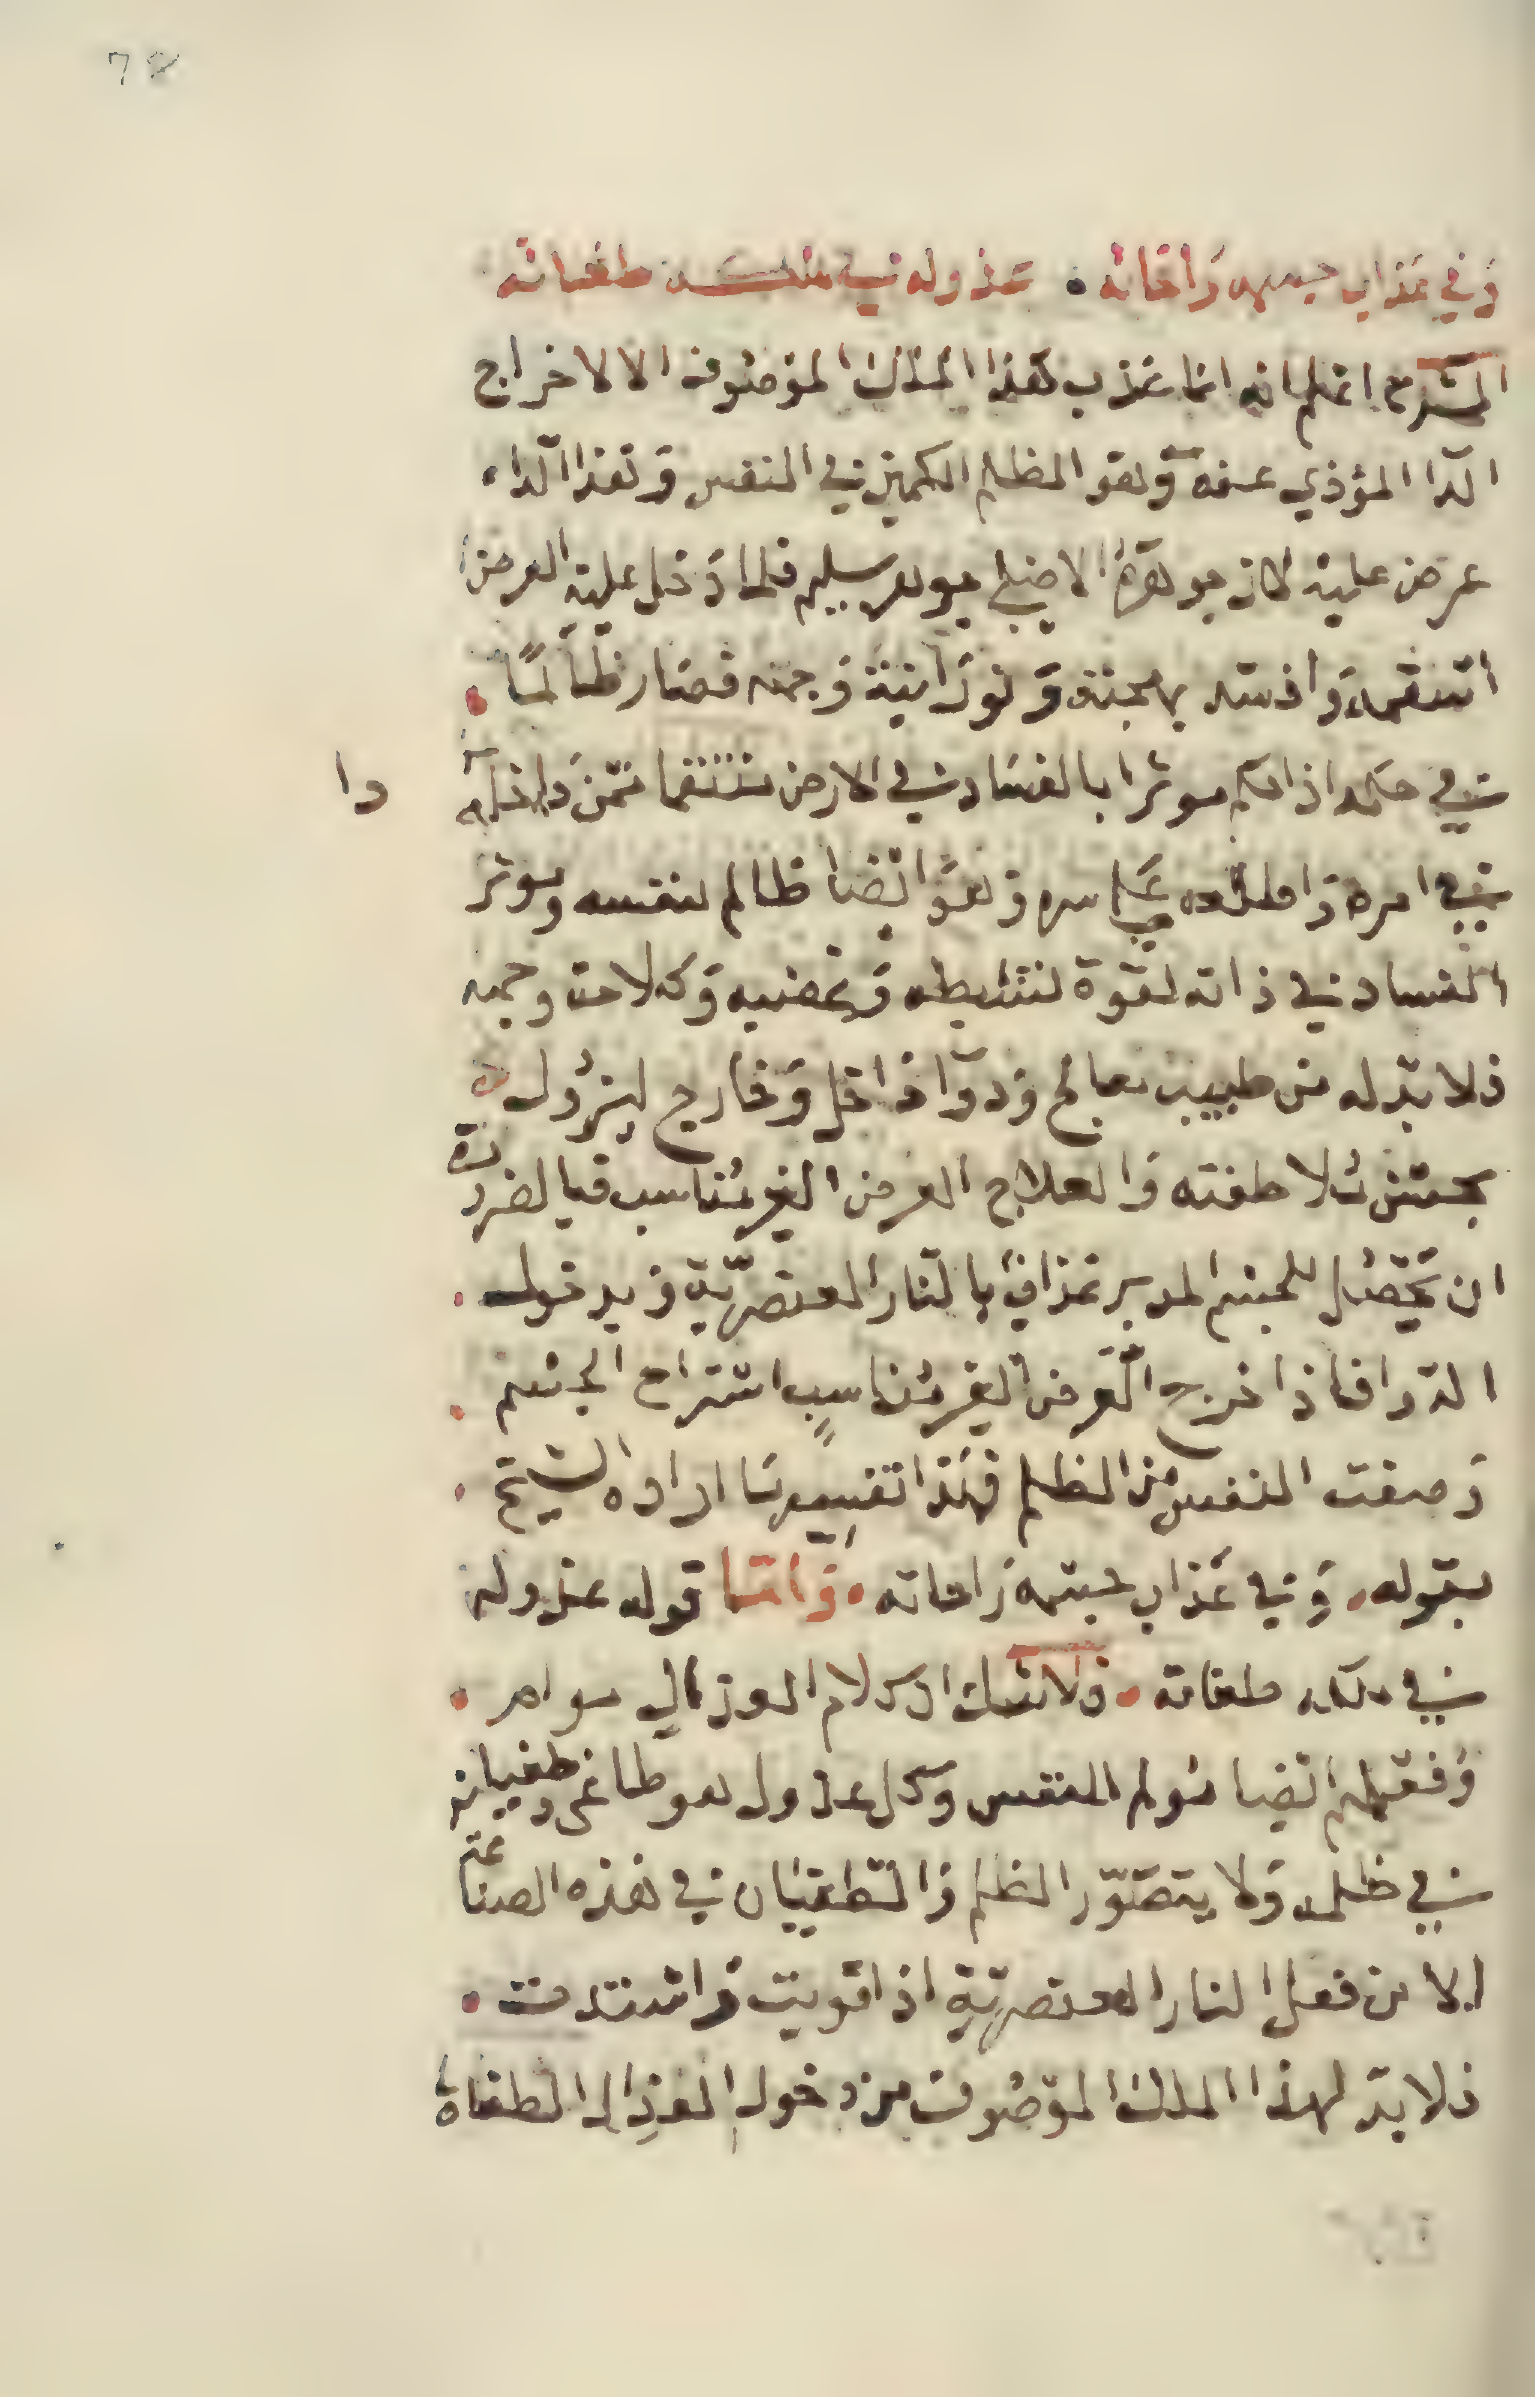 78
وفي عذاب جسمه راحاته • عذوله في ملكه طغاته
الشرح اعلم انه انما عذب هذا الملك الموصوف الا لاخراج
الدا المؤذي عنه وهو الظلم الكمين في النفس وهذا الدا
عرض عليه لان جوهره الاصلي جوهر سليم فلما دخل عليه العرض
اسقمه وافسد بهجته ونورانيته وجسمه فصار ظالمًا •
في حكمه اذا حكم موثرا بالفساد في الارض منتقما ممن داخله
دا
في امره وهو ايضا ظالم لنفسه وموثر
الفساد في ذاته لقوة وغضبه وجسمه
فلا بد له من طبيب معالج ودوآ داخل وخارج ليزول
بحسن ملاطفته والعلاج العرض الغير مناسب فبالضرورة
ان يحصل للجسم المدبر عذاب بالنار العنصرية وبدخول •
الدوا فاذا خرج العرض الغير مناسب استراح الجسم •
وصفت النفس من الظلم فهذا تفسير ما اراده الشيخ •
بقوله • وفي عذاب جسمه راحاته • واما قوله عذوله
في ملكه طغاته • فلا شك ان كلام العذال مر •
وفعلهم ايضا مولم للنفس وكل عذول هو طاغي وطغيانه
في ظلمه ولا يتصور الظلم والطغيان في هذه الصناعة
الا من فعل النار العنصرية اذا قويت واشتدت •
فلا بد لهذا الملك الموصوف من دخول العذال الطغاة